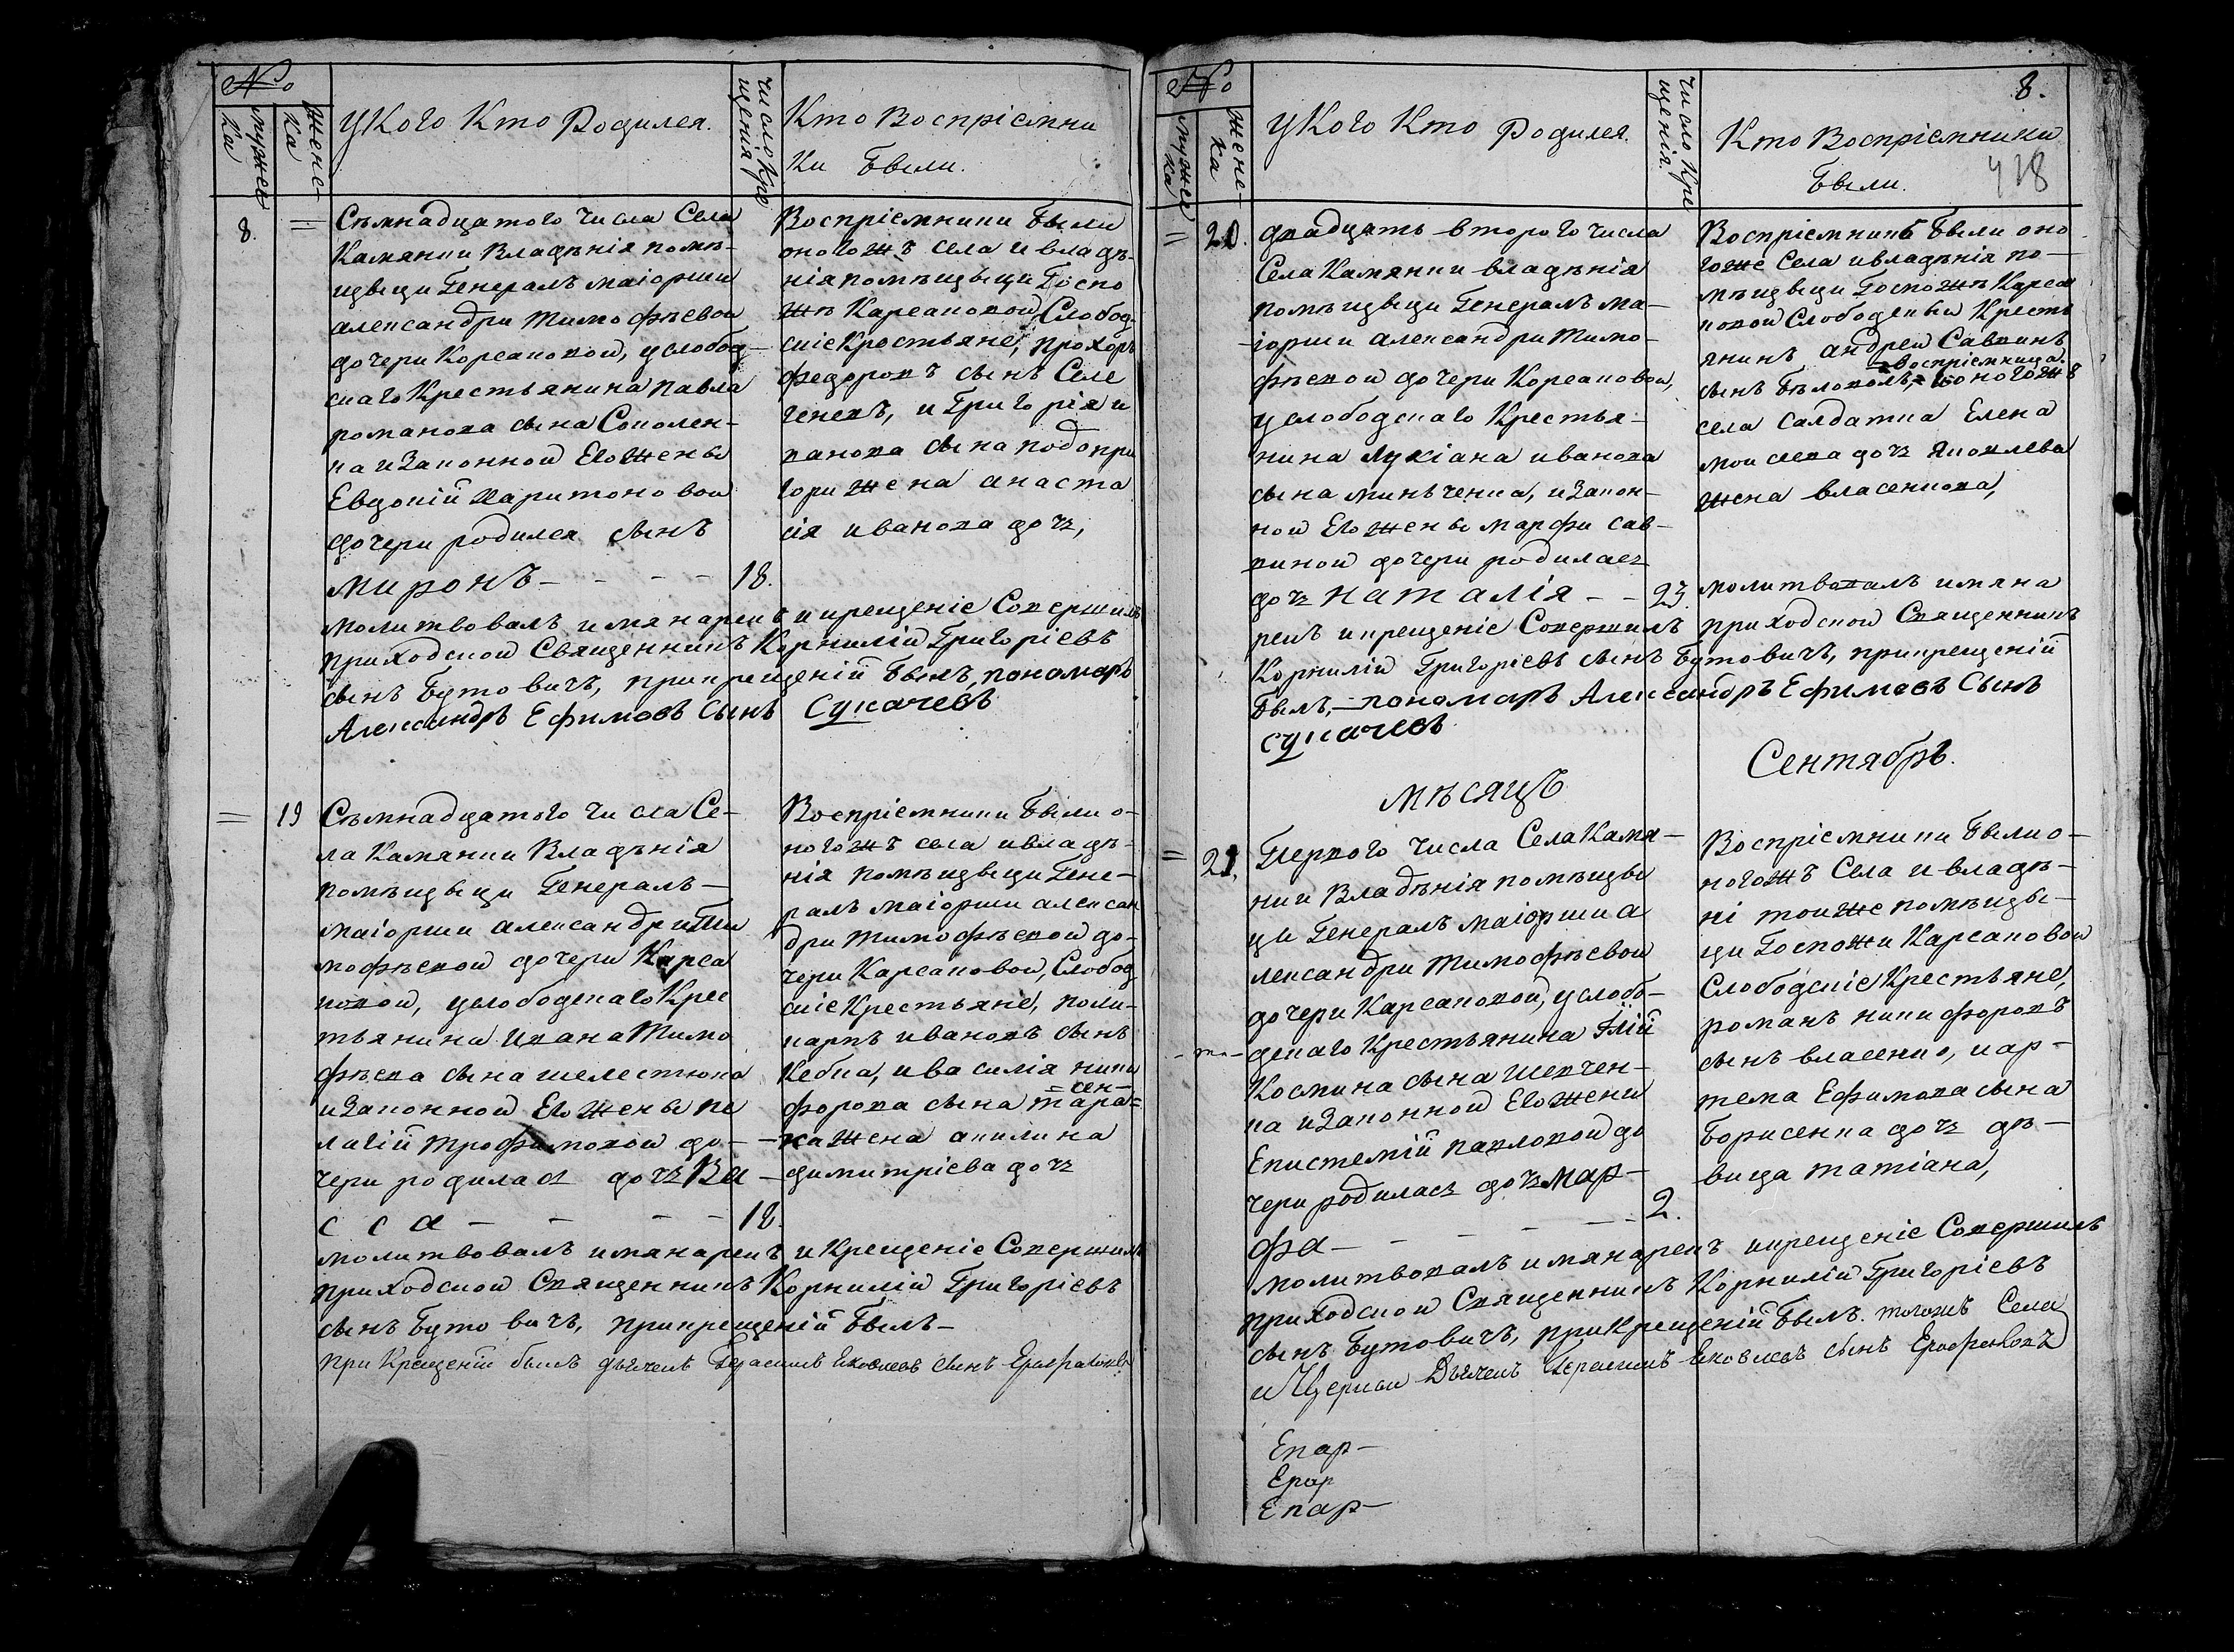 №
мужес
ка
Жене-
ка
Укого Кто Родился.
число Кре
щенія
Кто Воспріємни
ки Были.
8.
=
Съмнадцатого Числа Села
Камянки Владънія помѣ-
щыци Генералъ маіорши
александри тимофѣевои
дочери Корсаковои, услобод-
скаго Крестьянина павла
романова сына Соколен-
ка изаконнои Его жены
Евдокіи харитоновои
дочери родился сынъ
миронъ - - - - 18.
Воспріємники Были
оногожъ села и владѣ-
нія помѣщыци Госпо
жѣ Карсаковой Слобод-
скіе Крестьяне, прохоръ
федоровъ сынъ Селе
геневъ, и Григорія и
ванова сына подопри
гори жена анаста
сія иванова дочь,
молитвовалъ имянарекъ и крещеніе Совершилъ
приходской Священникъ Корнилій Григоріевъ
сынъ Бутовичъ, прикрещеніи Былъ, пономаръ
Александръ Ефимовъ Сынъ Сукачевъ
=
19
Съмнадцатого Числа Се-
ла Камянки Владѣнія
помѣщыци Генералъ-
маіорши александри Ти
мофѣевой дочери Карса
ковой, услободскаго Крес
тьянина Ивана Тимо
фѣева сына шелестюка
изаконной Его жены пе
лагіи трофимовой до-
чери родилась дочь Ва-
сса - - - - 18.
Воспріємники Были о-
ногожъ села ивладѣ-
нія помѣщыци Гене-
ралъ маіорши алексан
дри тимофѣевой до-
чери Карсаковой, Слобод
скіе Крестьяне, поли-
карпъ ивановъ сынъ
Кебка, и василія ники
форова сына тара=
=сен-
-ка жена акилина
димитріева дочь
молитвовалъ имянарекъ и Крещеніе Совершилъ
приходской Священникъ Корнилій Григоріевъ
сынъ Бутовичъ, прикрещеніи Былъ-
при Крещеніи былъ дьячекъ Герасимъ Яковлевъ сынъ Ерофаловъ
№
мужес
ка
Жене-
ка
Укого Кто Родился.
число Кре
щенія.
Кто Воспріємники
Были.
8.
418
=
20.
двадцать второго числа
Села Камянки владѣнія
помѣщыци Генералъ ма-
-іорши александри Тимо-
фѣевой дочери Корсаковои,
услободскаго Крестья-
нина Лукіана иванова
сына минъченка, изакон-
ной Его жены марфи сав-
виной дочери родилась
дочь Наталія - - 23.
Воспріємникъ Были оно
гоже Села ивладѣнія по-
мѣщыци Госпожѣ Карса
ковой Слободскій Кресть
янинъ андрей Саввинъ
сынъ Бѣловолъ, воспріємница оногожъ
села салдатка Елена
моисеева дочь Яковлева
жена власенкова,
молитвовалъ имяна
рекъ икрещеніе Совершилъ приходской Священникъ
Корнилій Григоріевъ сынъ Бутовичъ, прикрещеніи
Былъ,- пономаръ Александръ Ефимовъ Сынъ
Сукачевъ
мѣсяцъ Сентябръ.
=
21.
Первого Числа Села Камя-
нки Владѣнія помѣщы
ци Генералъ маіорши а
лександри Тимофѣевой
дочери Карсаковой, услобо-
дскаго Крестьянина Іліи
- та -
Космина сына шевчен-
ка изаконной Его жени
Епистеміи павловой до
чери родилась дочь мар-
фа - - - - 2.
Воспріємники Были о-
ногожъ Села и владѣ-
ні тоиже помѣщы-
ци Госпожи Карсаковой
Слободскіе Крестьяне,
романъ никифоровъ
сынъ власенко, иар-
тема Ефимова сына
Борисенка дочь дѣ-
вица татіана,
молитвовалъ имянарекъ икрещеніе Совершилъ
приходской Священникъ Корнилій Григоріевъ
сынъ Бутовичъ, прикрещеніи Былъ. тогожъ Села
и Церкви Дьячекъ Герасимъ Яковлевъ сынъ Ерофаловъ
Епар-
Ерар
Епар-